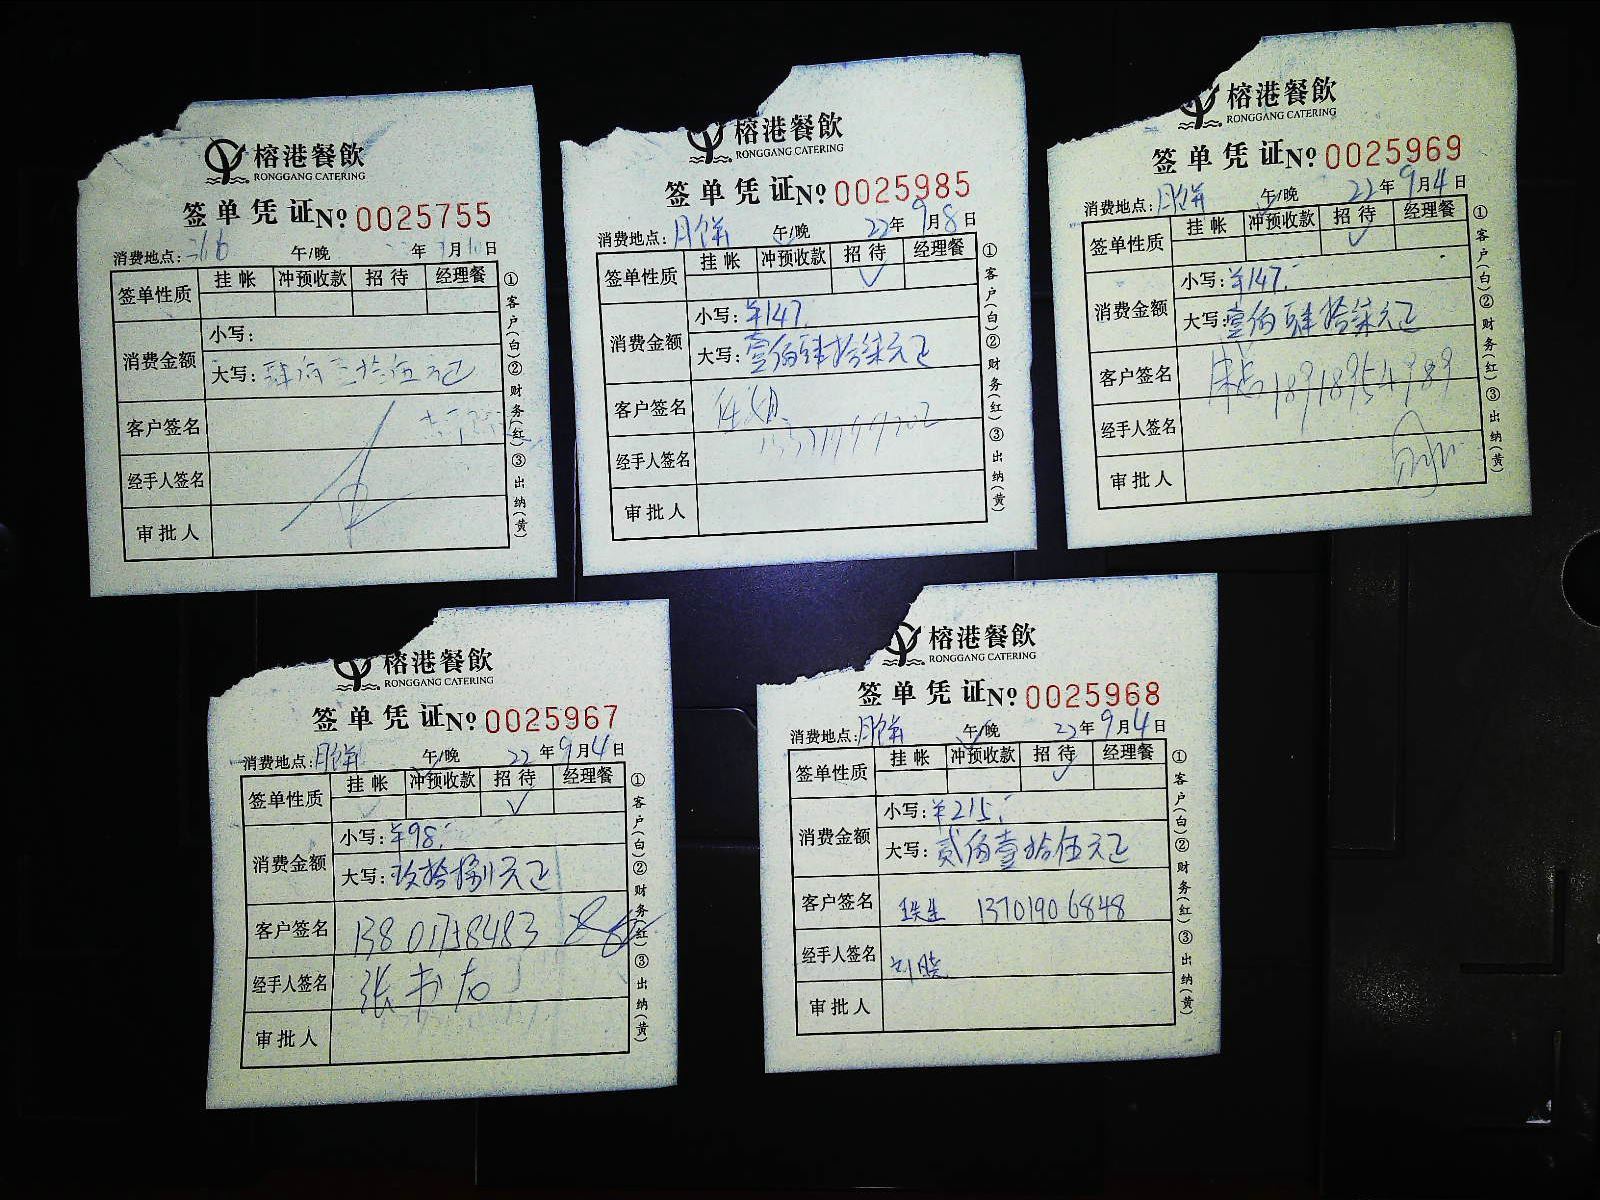 榕港餐飲
RONGGANG CATERING
签单凭证№ 0025755
消费地点: 午/晚 年 月 日
签单性质 挂帐 冲预收款 招待 经理餐
消费金额 小写:
大写: 肆佰三拾伍元正
客户签名
经手人签名
审批人
①客户(白)②财务(红)③出纳(黄)
榕港餐飲
RONGGANG CATERING
签单凭证№ 0025985
消费地点: 月饼 午/晚 22年9月8日
签单性质 挂帐 冲预收款 招待 经理餐
✓
消费金额 小写: ¥147.
大写: 壹佰肆拾柒元正
客户签名
经手人签名
审批人
①客户(白)②财务(红)③出纳(黄)
榕港餐飲
RONGGANG CATERING
签单凭证№ 0025969
消费地点: 月饼 午/晚 22年9月4日
签单性质 挂帐 冲预收款 招待 经理餐
✓
消费金额 小写: ¥147.
大写: 壹佰肆拾柒元正
客户签名 18918954989
经手人签名
审批人
①客户(白)②财务(红)③出纳(黄)
榕港餐飲
RONGGANG CATERING
签单凭证№ 0025967
消费地点: 月饼 午/晚 22年9月4日
签单性质 挂帐 冲预收款 招待 经理餐
✓
消费金额 小写: ¥98.
大写: 玖拾捌元正
客户签名 13801758483
经手人签名 张书右
审批人
①客户(白)②财务(红)③出纳(黄)
榕港餐飲
RONGGANG CATERING
签单凭证№ 0025968
消费地点: 月饼 午/晚 22年9月4日
签单性质 挂帐 冲预收款 招待 经理餐
✓
消费金额 小写: ¥215.
大写: 贰佰壹拾伍元正
客户签名 13701906848
经手人签名 刘晓
审批人
①客户(白)②财务(红)③出纳(黄)